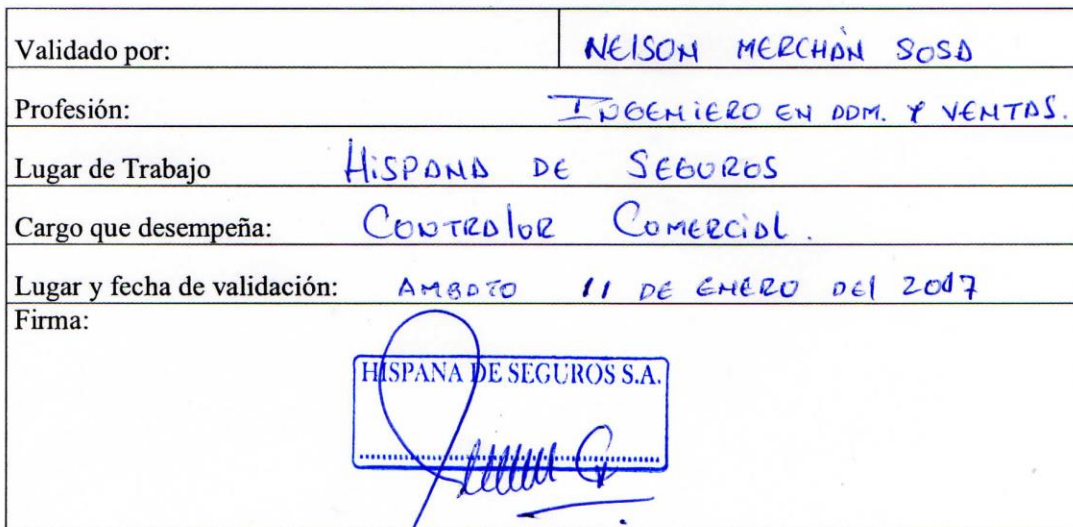 Validado por: NELSON MERCHÁN SOSA
Profesión: INGENIERO EN ADM. Y VENTAS.
Lugar de Trabajo HISPANA DE SEGUROS
Cargo que desempeña: CONTRALOR COMERCIAL.
Lugar y fecha de validación: AMBATO 11 DE ENERO DEL 2017
Firma:
HISPANA DE SEGUROS S.A.